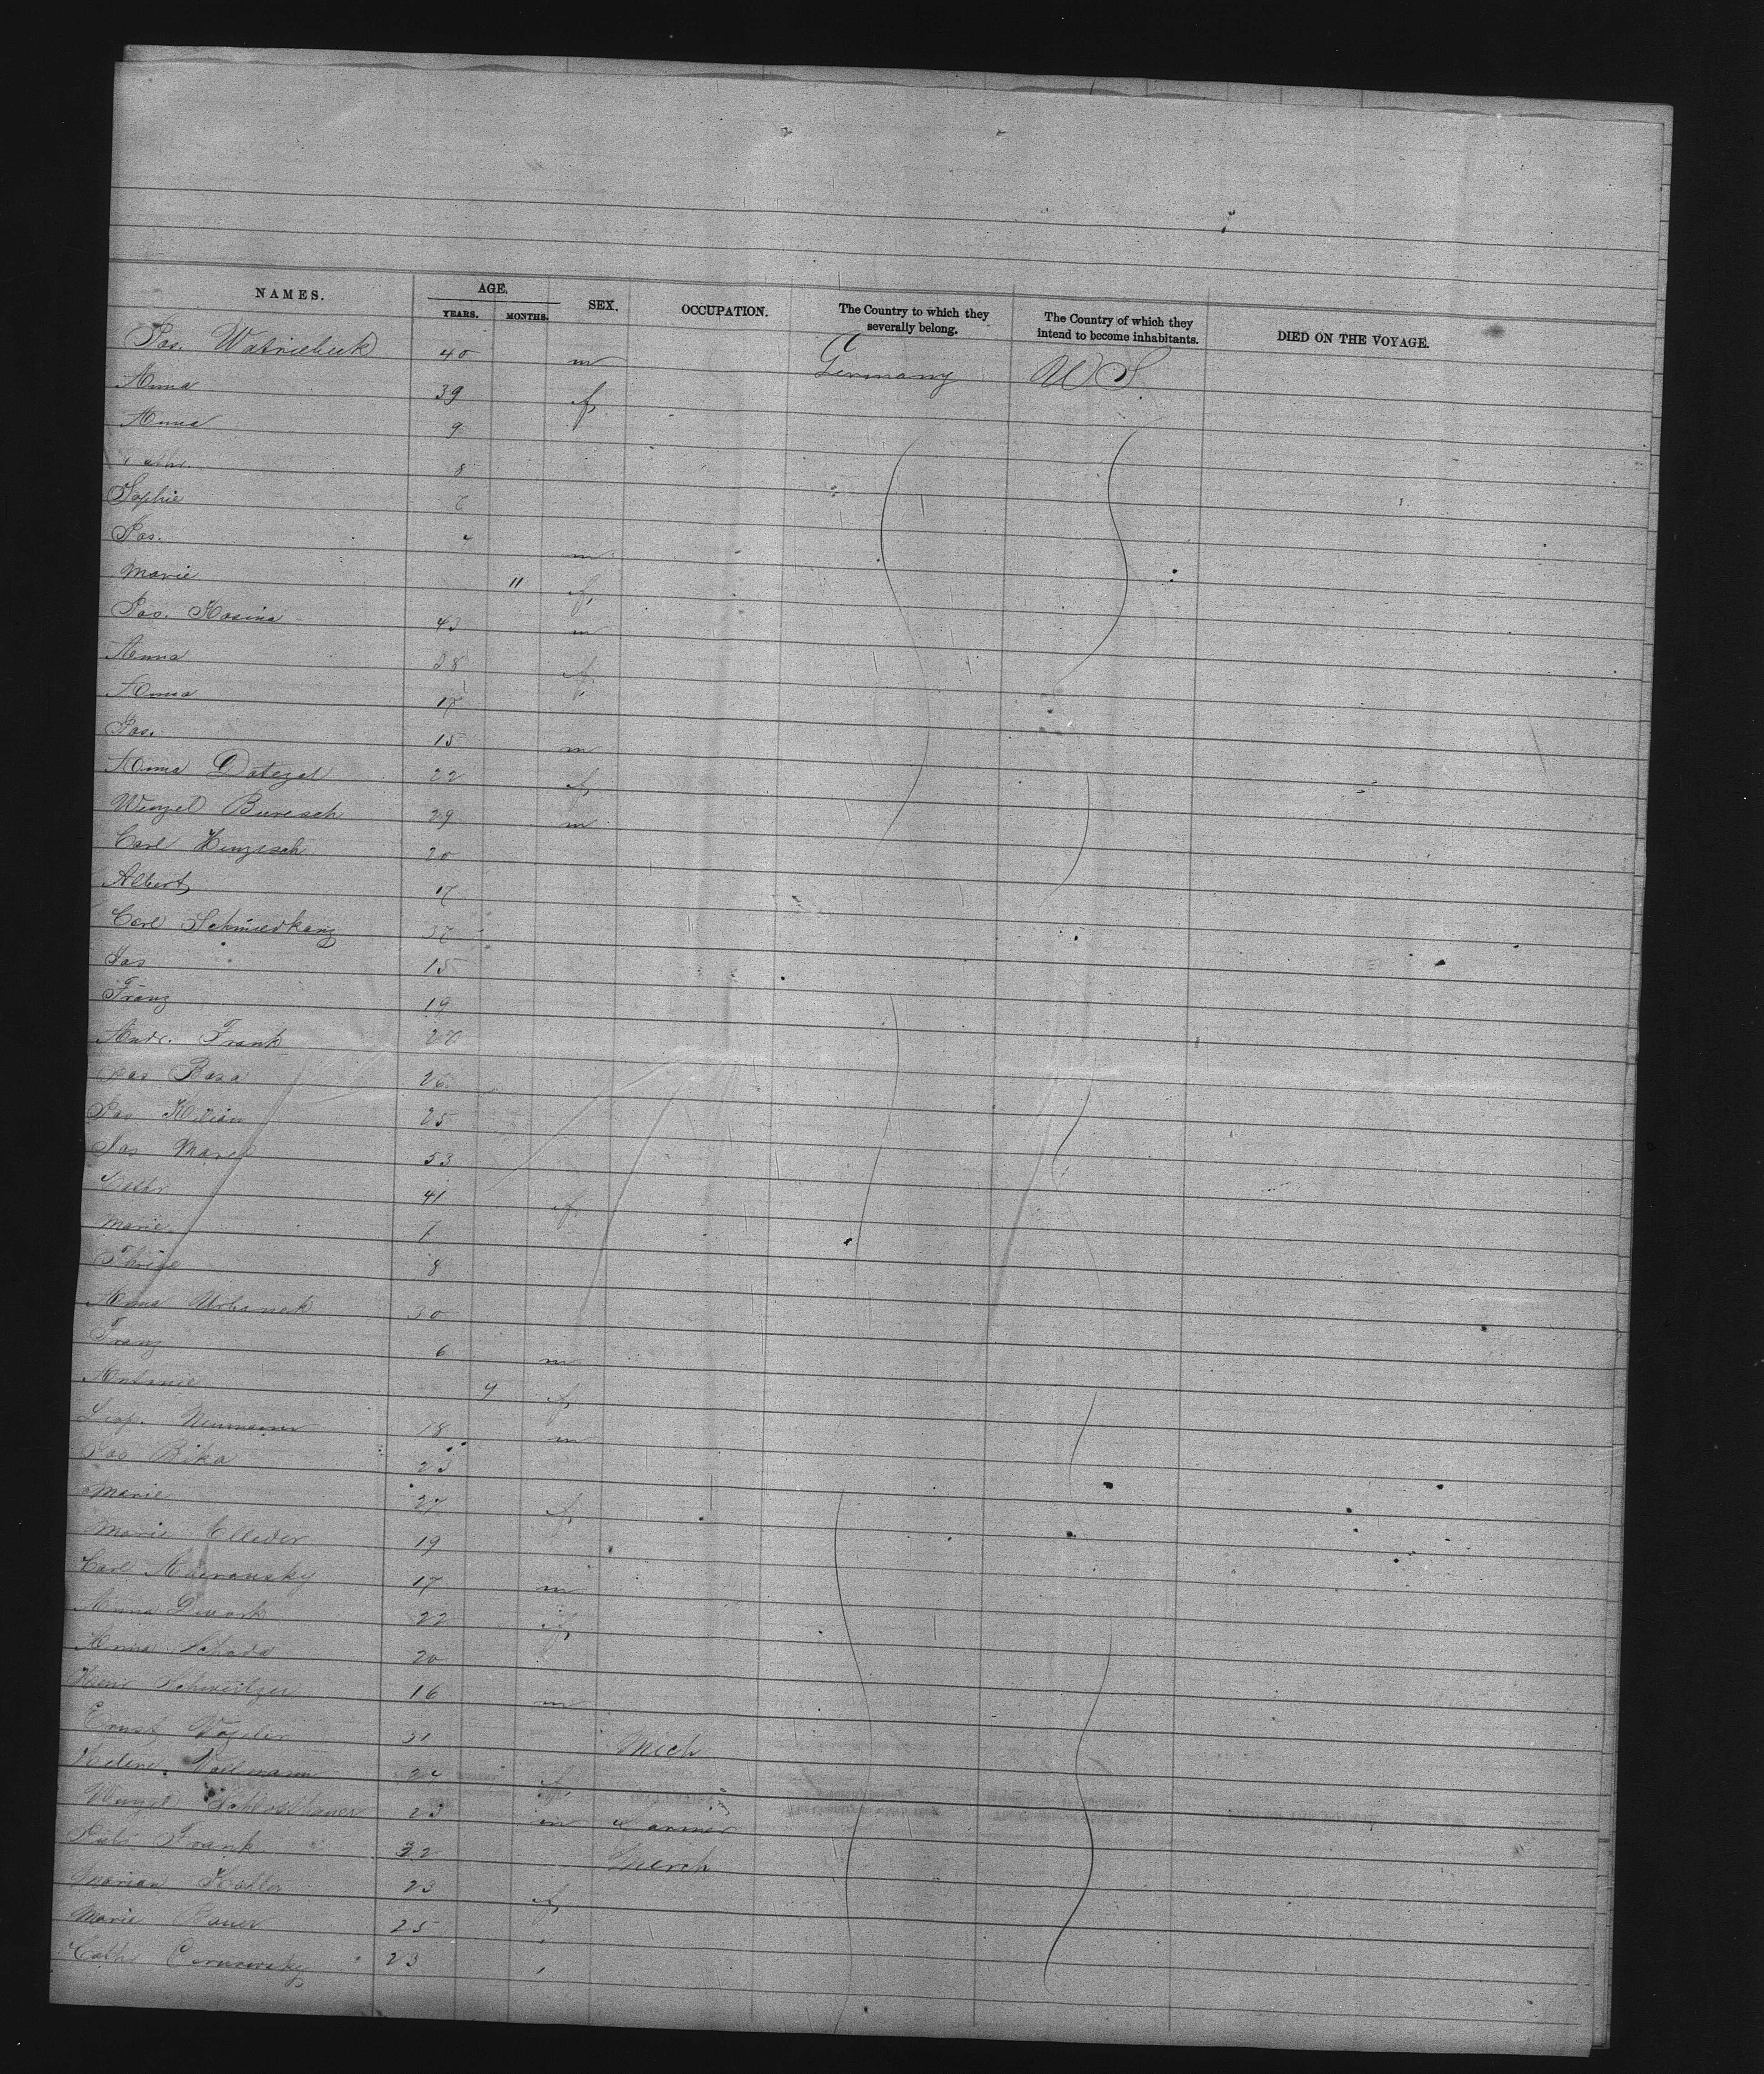 NAMES. AGE. YEARS. MONTHS. SEX. OCCUPATION. The Country to which they severally belong. The Country of which they intend to become inhabitants. DIED ON THE VOYAGE.
Jos. 40 m Germany U S
Anna 39 f
Anna 9
Cathr. 8
Sophie 6
Jos. 4 m
Marie 11 f
Jos. Kosina 43 m
Anna 28 f
Anna 17 f
Jos. 15 m
Anna Dolezal 22 f
Wenzel Buresch 29 m
Carl 20
Albert 17
Carl Schmiedkanz 37
Jos 15
Franz 19
Andr. Frank 27
Jos Basa 26
Jos Kilian 25
Jos Marek 53
Cathr 41 f
Marie 7
8
Anna Urbanek 30
Franz 6 m
Antonie 9 f
Neumann 18 m
Jos Rika 23
Marie 27 f
Marie Elleder 19
Carl 17 m
Anna Dworak 22 f
Anna 20
Schweitzer 16 m
Ernst Vogeler 31 Mech
Helene 22 f
Wenzel 23 m Farmer
Frank 32 Merch
Marian Koller 23 f
Marie Bauer 25 "
Cath 23 "